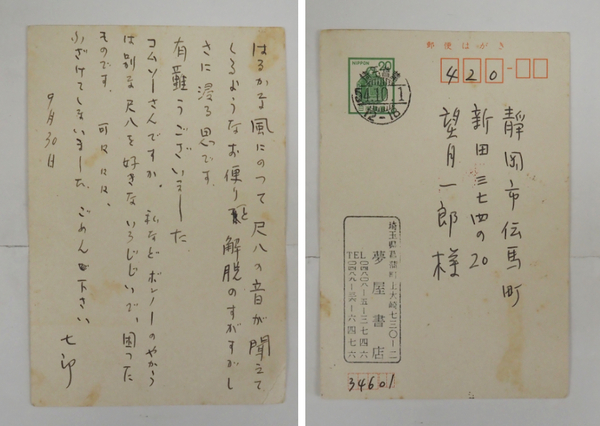 はるかな風にのって 尺八の音が聞えて
くるようなお便りと 解脱のすがすがし
さに浸る思です。
有難うございました。
コムソーさんですか。 私など ボンノーのやから
は別な尺八を好きな いろじじいで、困った
ものです。 可々々々、
ふざけてしまいました、ごめん下さい
七郎
9月30日
郵便はがき
NIPPON
20
54.10.1
12-18
420
静岡市伝馬町
新田三七四の20
望月一郎様
埼玉県菖蒲町上大崎七三〇-二
夢屋書店
TEL 〇四八〇八-五-三七四六
TEL
六四七六
34601